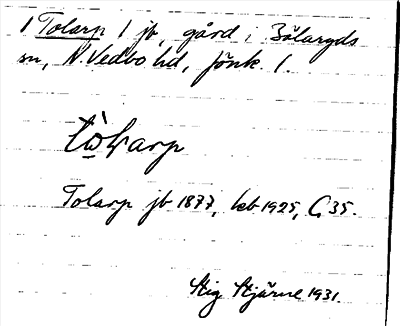 1 Tolarp 1 jb, gård i Bälaryds
sn, N. Vedbo hd, Jönk. l.
Tolarp jb 1877, kb 1925, G 35.
Stig Stjärne 1931.